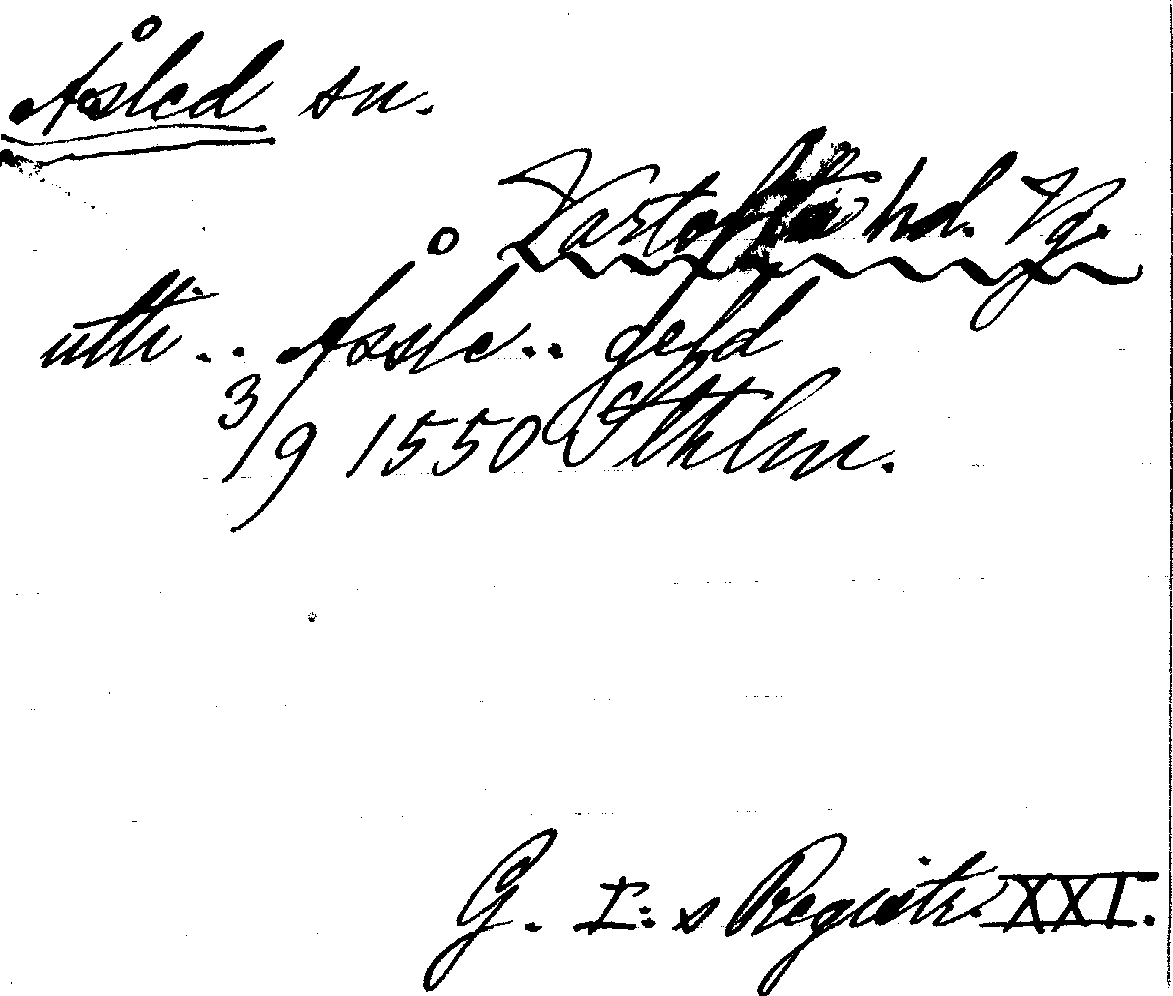 Åsled sn.
Vartofta hd. Vg.
utti .. Åssle .. geld
3/9 1550 Sthlm.
G. I:s Registr. XXI.